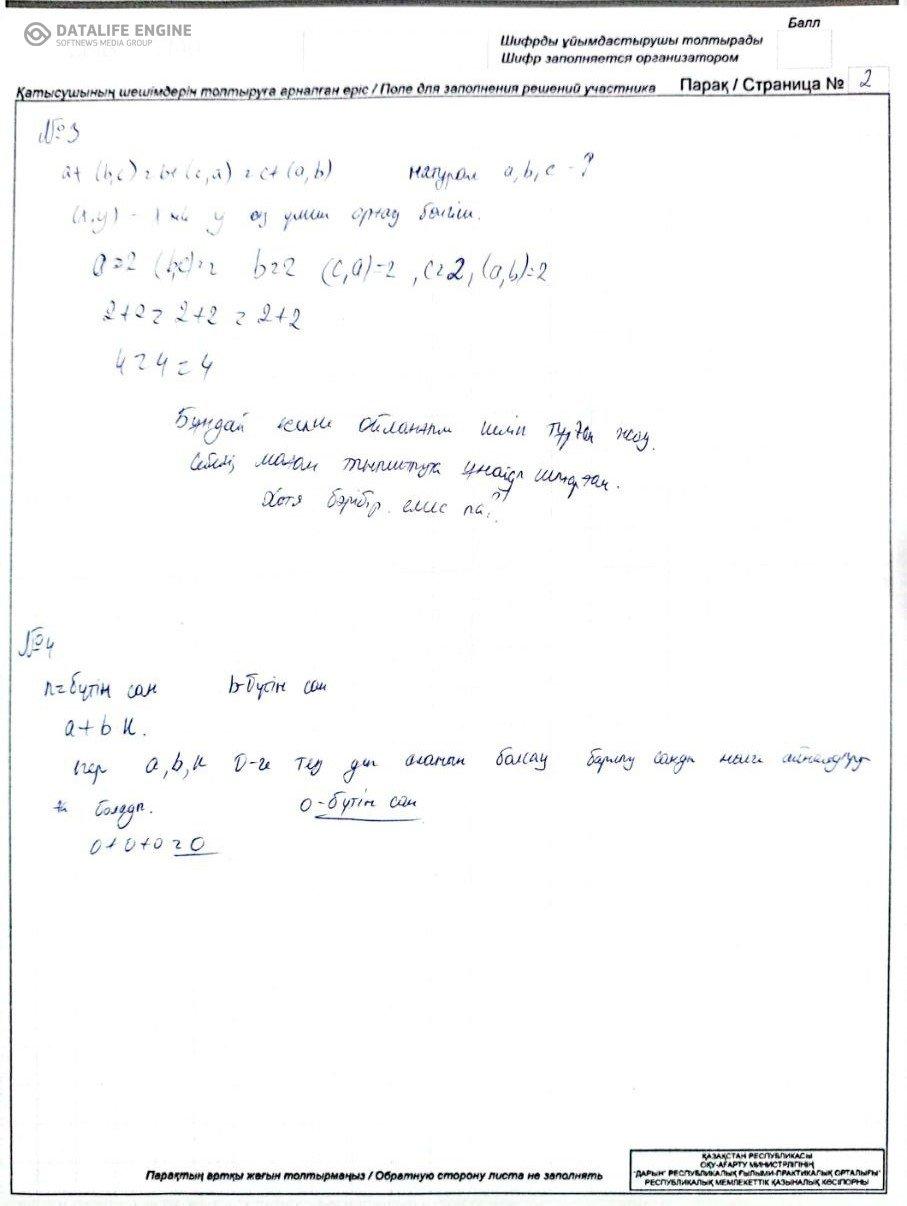 DATALIFE ENGINE
SOFTNEWS MEDIA GROUP
Балл
Шифрды ұйымдастырушы толтырады
Шифр заполняется организатором
Қатысушының шешімдерін толтыруға арналған еріс / Поле для заполнения решений участника
Парақ / Страница № 2
№3
a+ (b,c) = b+ (c,a) = c+ (a,b) натурал a,b,c - ?
(x,y) - y ортақ бөлгіш.
a=2 (b,c)=2 b=2 (c,a)=2 , c=2, (a,b)=2
2+2 = 2+2 = 2+2
4 = 4 = 4
Бұндай жоқ.
маған ұнайды
Хотя бәрібір емес па??
№4
n=бүтін сан b-бүтін сан
a+b к.
егер a,b,к 0-ге тең деп алатын болсақ барлық санды
болады. 0-бүтін сан
0+0+0=0
Парақтың артқы жағын толтырмаңыз / Обратную сторону листа не заполнять
ҚАЗАҚСТАН РЕСПУБЛИКАСЫ
ОҚУ-АҒАРТУ МИНИСТРЛІГІНІҢ
"ДАРЫН" РЕСПУБЛИКАЛЫҚ ҒЫЛЫМИ-ПРАКТИКАЛЫҚ ОРТАЛЫҒЫ"
РЕСПУБЛИКАЛЫҚ МЕМЛЕКЕТТІК ҚАЗЫНАЛЫҚ КӘСІПОРНЫ